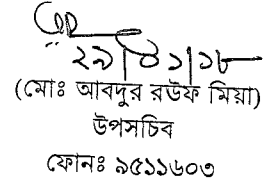 ২৯/০১/১৮
(মোঃ আবদুর রউফ মিয়া)
উপসচিব
ফোনঃ ৯৫১১৬০৩